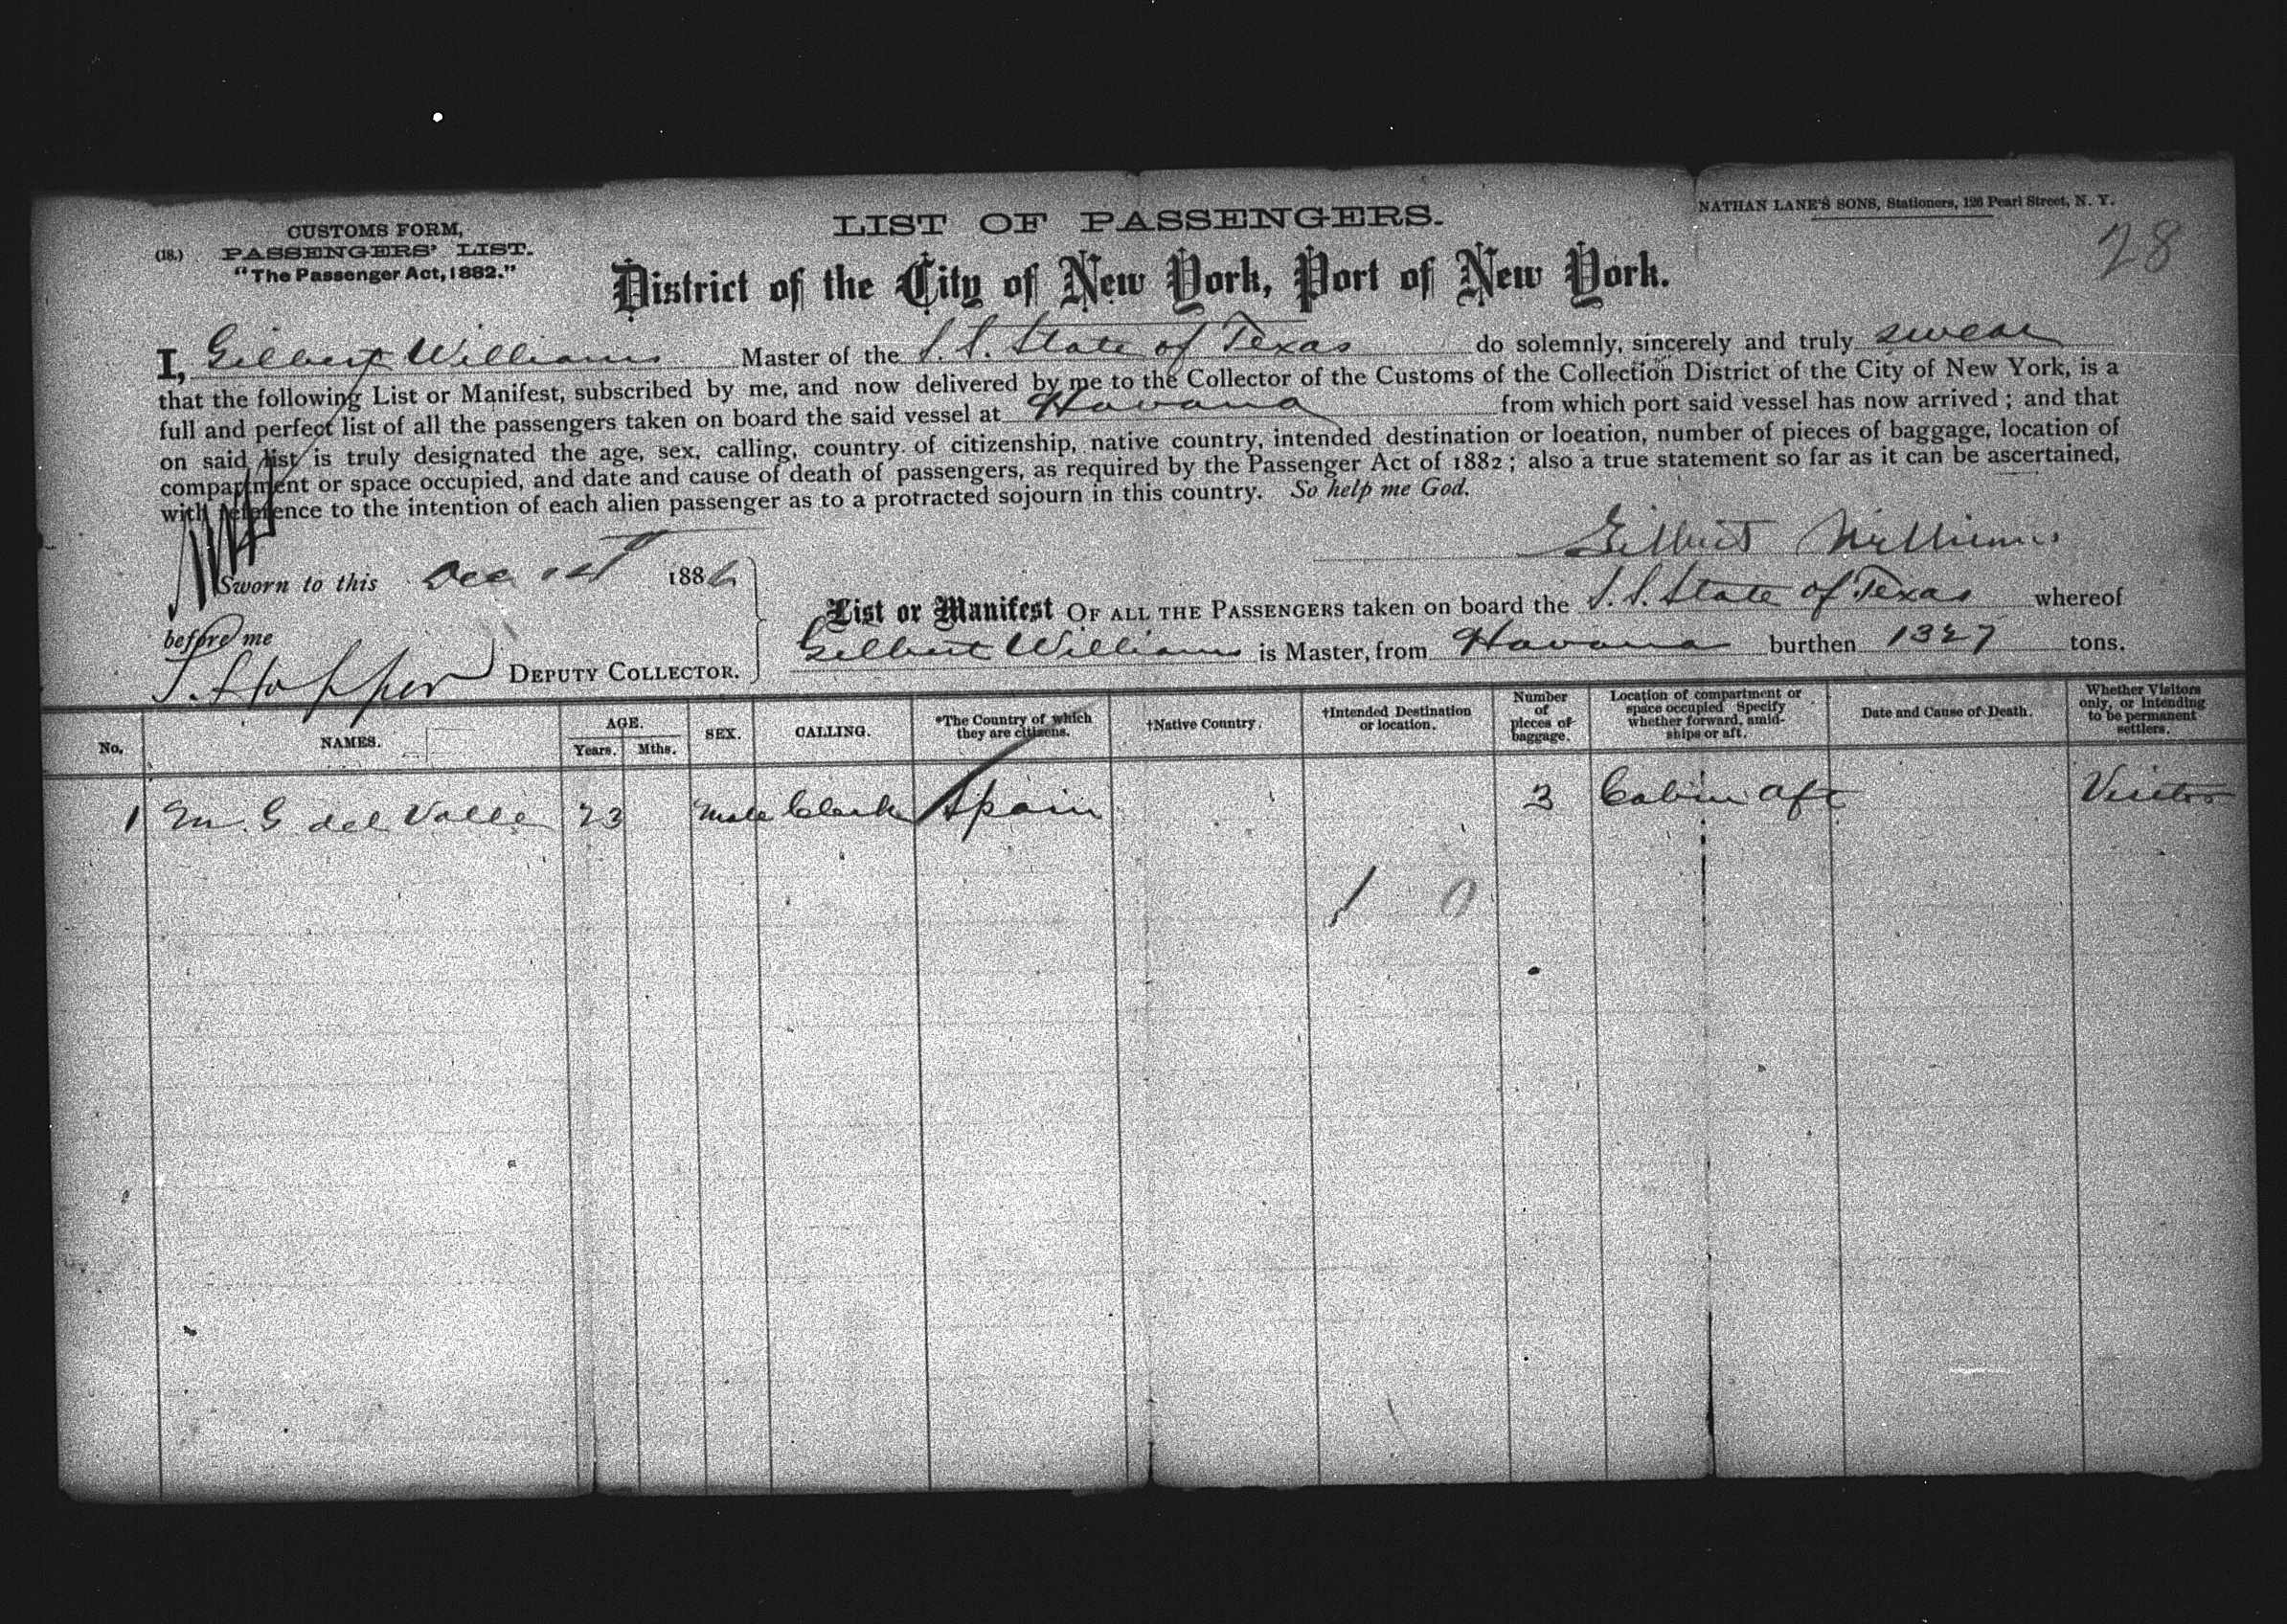 CUSTOMS FORM,
(18.) PASSENGERS' LIST.
"The Passenger Act, 1882."
LIST OF PASSENGERS.
NATHAN LANE'S SONS, Stationers, 126 Pearl Street, N. Y.
28
District of the City of New York, Port of New York.
I, Gilbert Williams Master of the S.S. State of Texas do solemnly, sincerely and truly swear
that the following List or Manifest, subscribed by me, and now delivered by me to the Collector of the Customs of the Collection District of the City of New York, is a
full and perfect list of all the passengers taken on board the said vessel at Havana from which port said vessel has now arrived; and that
on said list is truly designated the age, sex, calling, country of citizenship, native country, intended destination or location, number of pieces of baggage, location of
compartment or space occupied, and date and cause of death of passengers, as required by the Passenger Act of 1882; also a true statement so far as it can be ascertained,
with reference to the intention of each alien passenger as to a protracted sojourn in this country. So help me God.
Gilbert Williams
Sworn to this Dec 1st 1886
before me
DEPUTY COLLECTOR.
List or Manifest OF ALL THE PASSENGERS taken on board the S.S. State of Texas whereof
Gilbert Williams is Master, from Havana burthen 1327 tons.
No. NAMES. AGE. Years. Mths. SEX. CALLING. *The Country of which they are citizens. †Native Country. †Intended Destination or location. Number of pieces of baggage. Location of compartment or space occupied Specify whether forward, amidships or aft. Date and Cause of Death. Whether Visitors only, or Intending to be permanent settlers.
1 M. G del Valle 23 Male Clerk Spain 3 Cabin aft Visitor
1 0